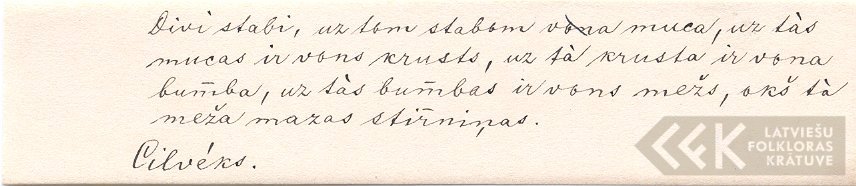 Divi stabi, uz tom stabom vona muca, uz tàs
mucas ir vons krusts, uz tà krusta ir vona
bum̃ba, uz tàs bum̃bas ir vons mežs, okš tà
meža mazas stir̃niņas.
Cilvéks.
LATVIEŠU
FOLKLORAS
KRĀTUVE